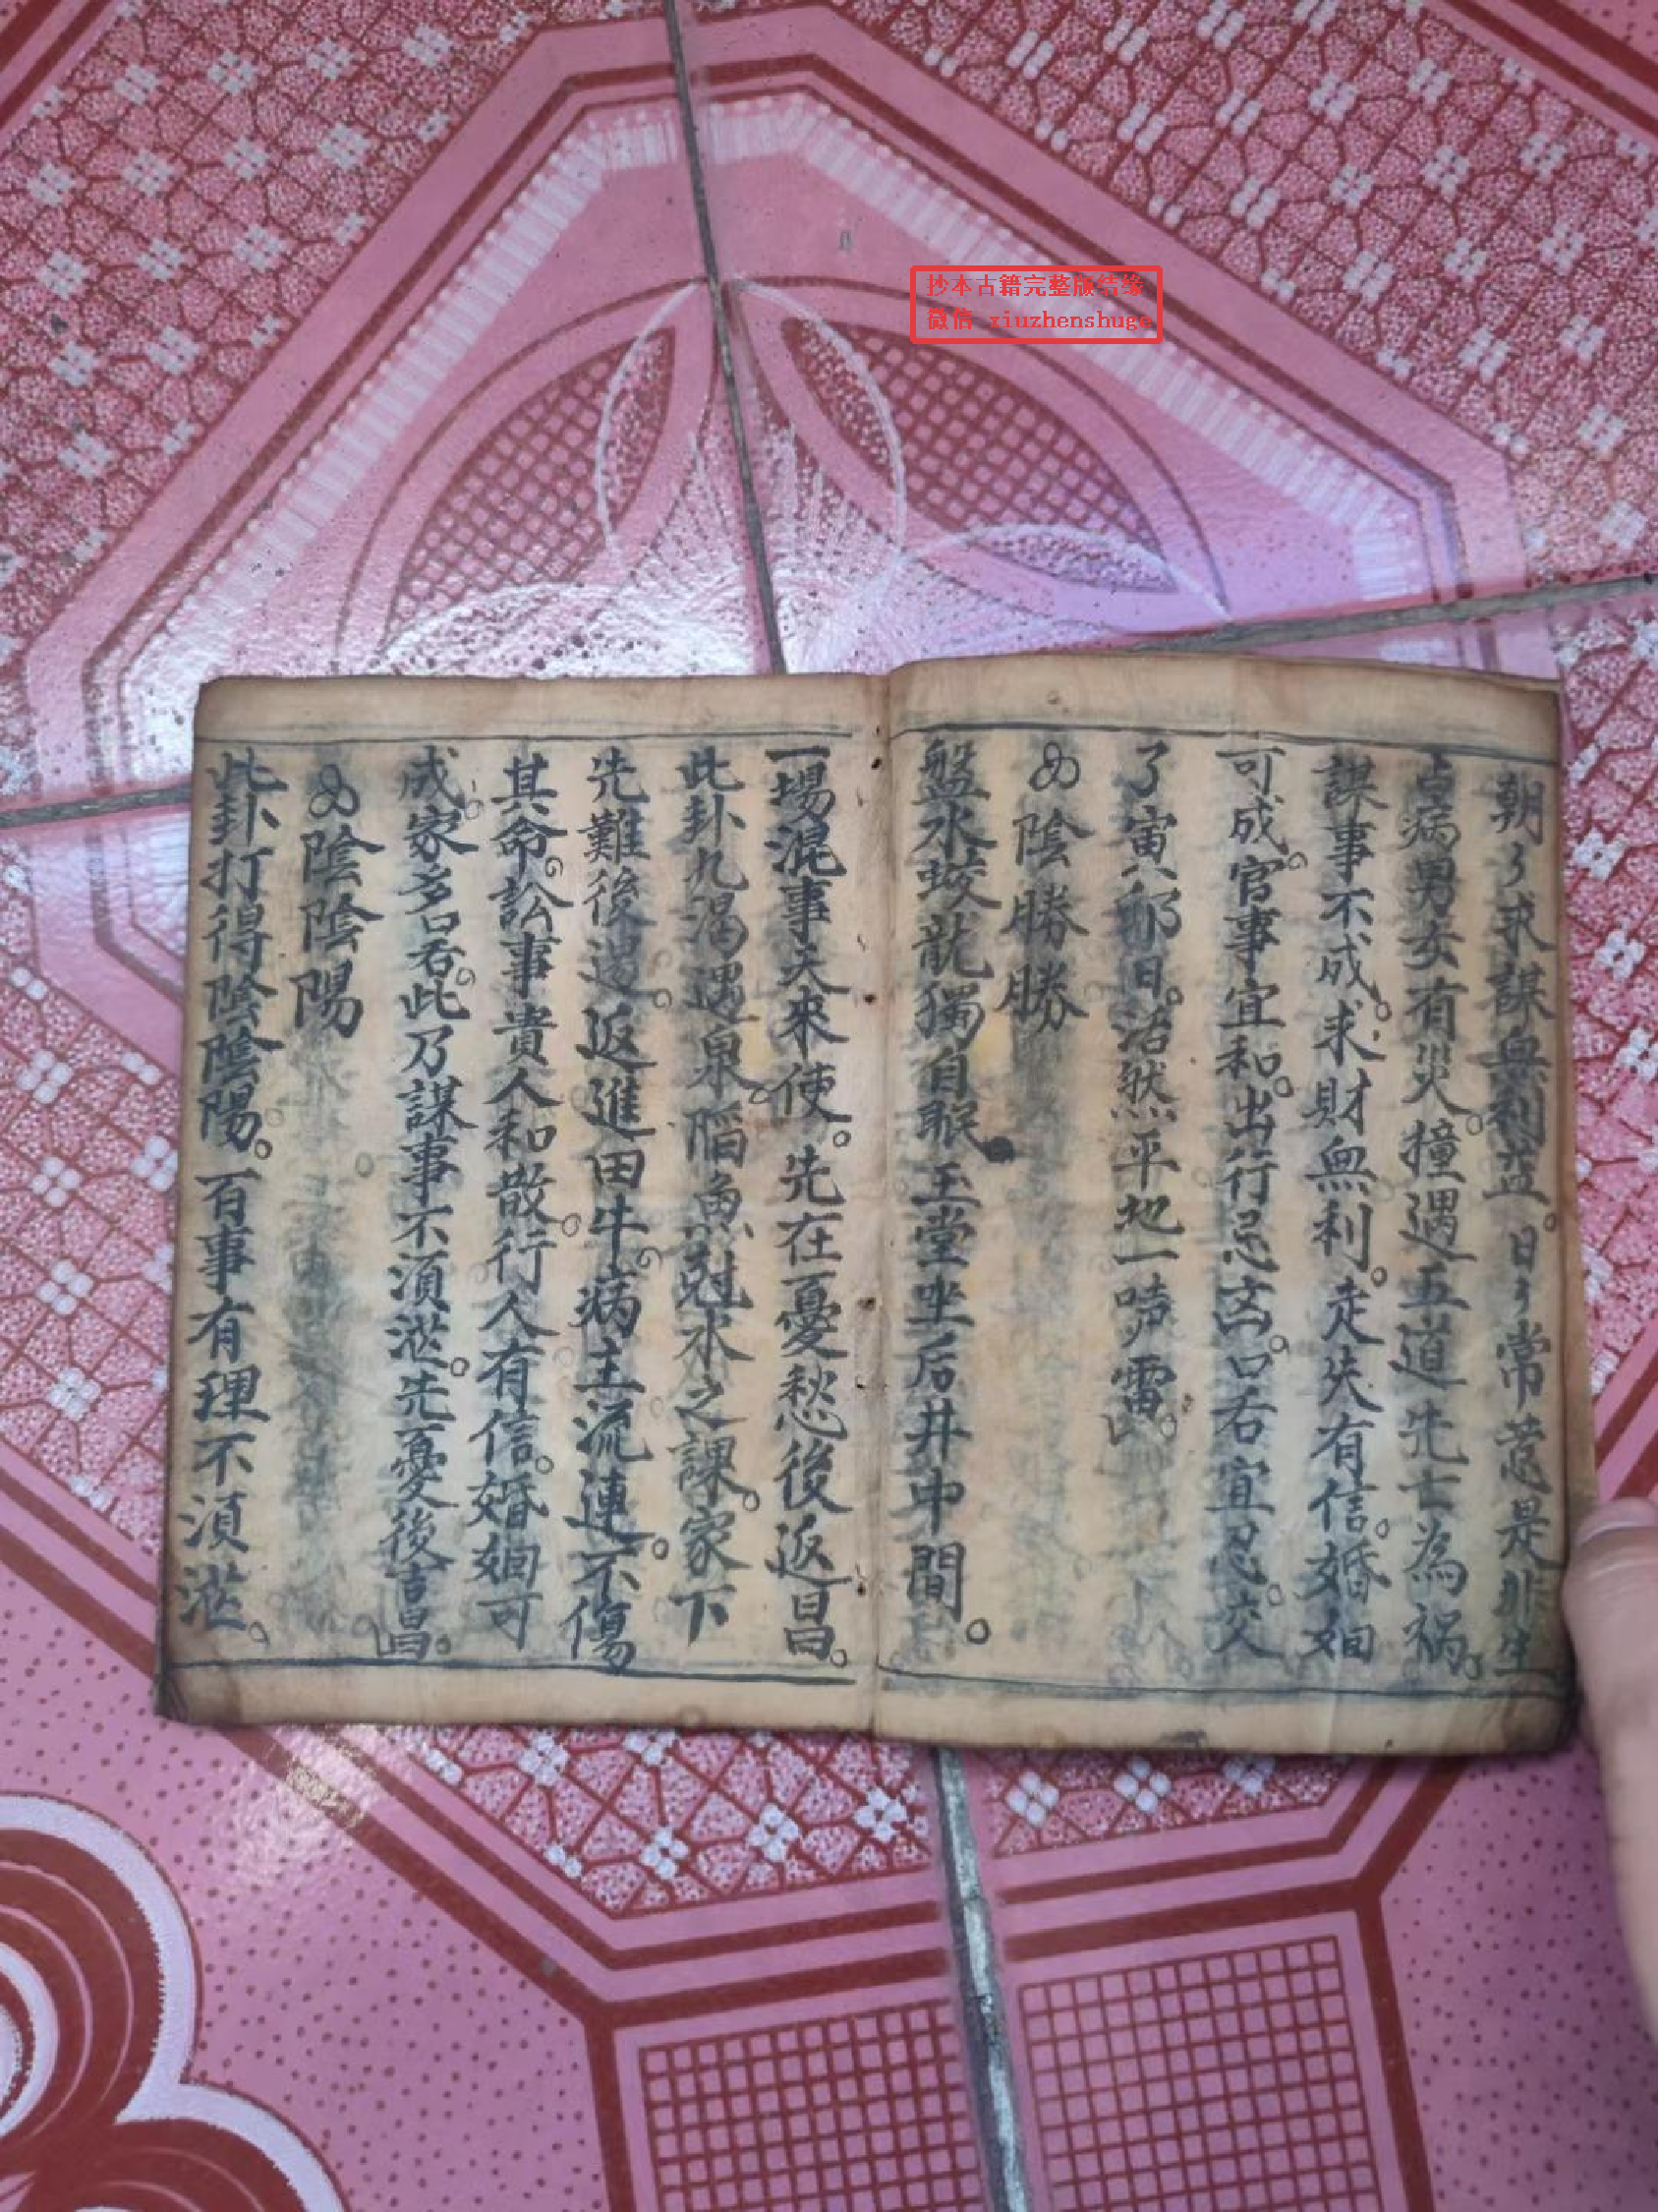 抄本古籍完整版结缘
微信 xiuzhenshuge
朝々求謀無利益。日々常惹是非生
占病男女有災。撞遇五道先亡為禍。
謀事不成。求財無利。走失有信。婚姻
可成。官事宜和。出行忌凶。口舌宜忍。交
了寅夘日。活然平地一声雷。
陰勝勝
盤水蛟龍獨自眠 玉堂坐后井中間。
一場混事夫來使。先在憂愁後返昌。
此卦九渴遇泉 陷魚尅水之課。家下
先難後邊。返進田牛。病主流連。不傷
其命。訟事貴人和散。行人有信。婚姻可
成。家多口舌。此乃謀事不須滋。先憂後吉昌。
陰陰陽
此卦打得陰陰陽。百事有理不須滋。